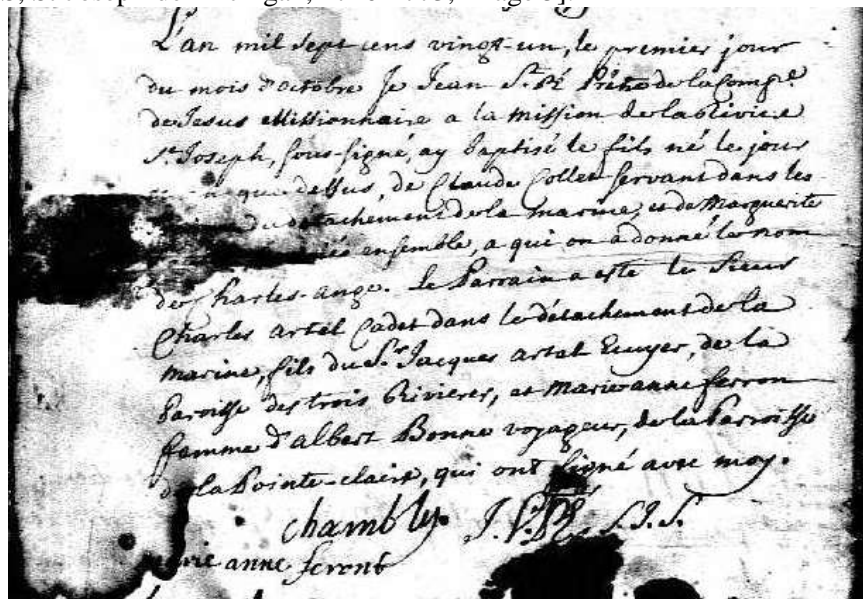 L'an mil sept cens vingt-un, le premier jour
du mois d'octobre Je Jean St. Pé Prêtre de la Comp.e
de Jesus Missionnaire a la mission de la Riviere
St. Joseph, sous-signé, ay baptisé le fils né le jour
que dessus, de Claude Collet servant dans les
detachement de la marine, et de Marguerite
ensemble, a qui on a donné le nom
de Charles-ange. Le Parrain a esté le Sieur
Charles artel Cadet dans le détachement de la
marine, fils du Sr. Jacques artal Ecuyer, de la
Paroisse des trois Rivieres, et Marie anne ferron
femme d'albert Bonne voyageur, de la Parroisse
de la Pointe-claire, qui ont signé avec moy.
chambly. J. St. Pé S.J.
anne feront